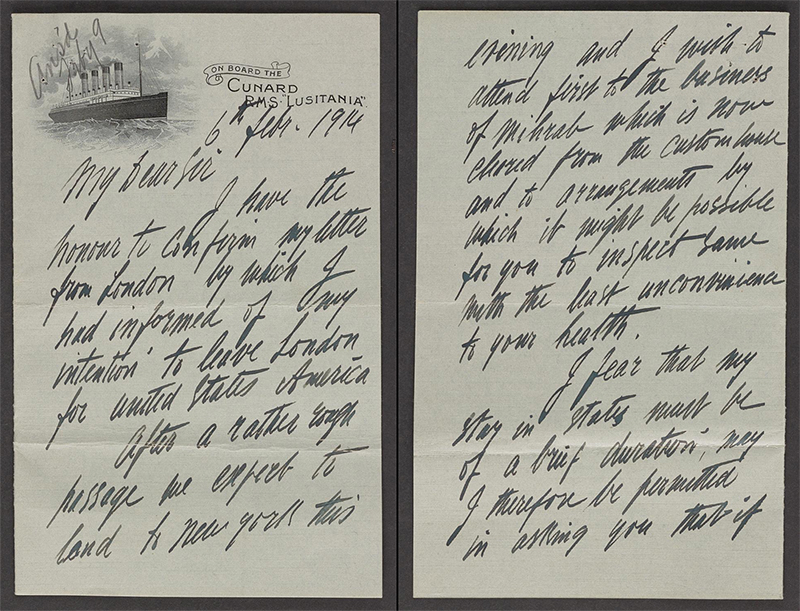 Feby 9
ON BOARD THE
CUNARD
R.M.S. "LUSITANIA".
6th Febr. 1914
My Dear Sir
I have the
honour to confirm my letter
from London by which I
had informed of my
intention to leave London
for united States America
After a rather rough
passage we expect to
land to New york this
evining and I wish to
attend first to the business
of mihrab which is now
cleared from the customhouse
and to arrangements by
which it might be possible
for you to inspect same
with the least unconvinience
to your health.
I fear that my
stay in States must be
of a brief duration, may
I therefore be permitted
in asking you that if